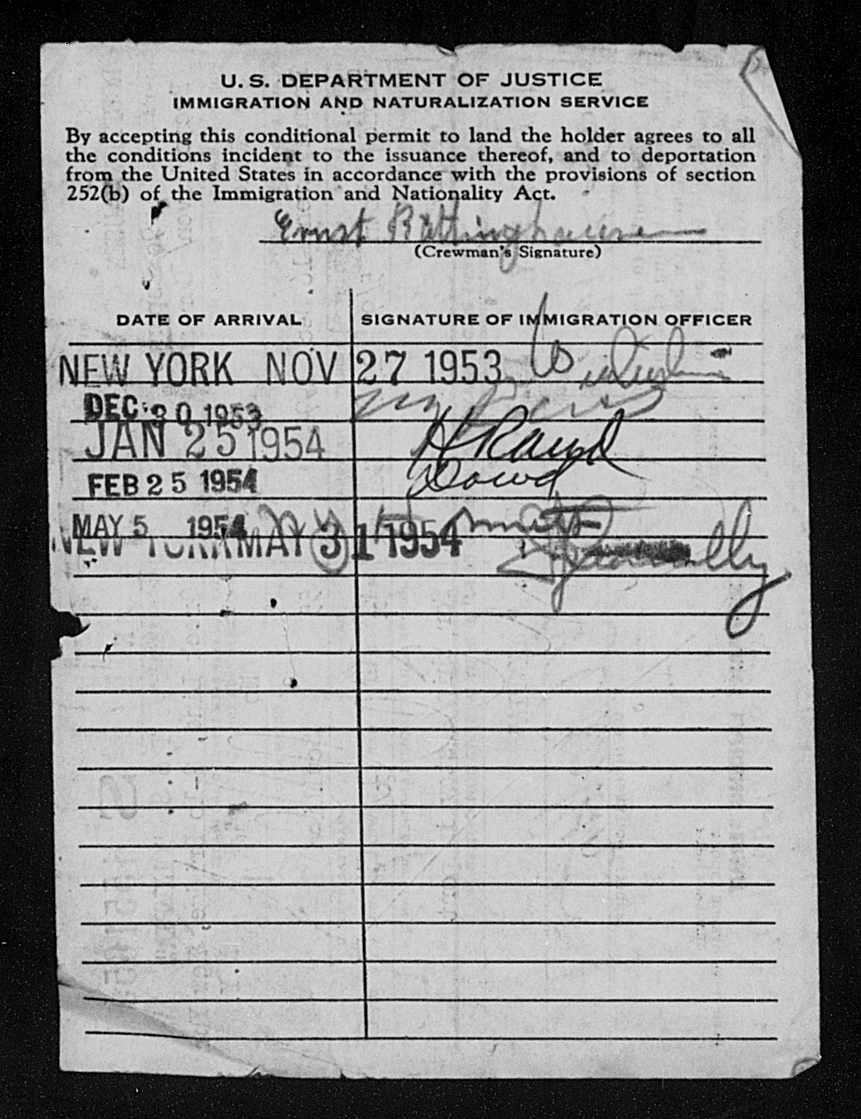 U. S. DEPARTMENT OF JUSTICE
IMMIGRATION AND NATURALIZATION SERVICE
By accepting this conditional permit to land the holder agrees to all
the conditions incident to the issuance thereof, and to deportation
from the United States in accordance with the provisions of section
252(b) of the Immigration and Nationality Act.
Ernst
(Crewman's Signature)
DATE OF ARRIVAL SIGNATURE OF IMMIGRATION OFFICER
NEW YORK NOV 27 1953
DEC 30 1953
JAN 25 1954
FEB 25 1954 Dowd
MAY 5 1954
NEW YORK MAY 31 1954